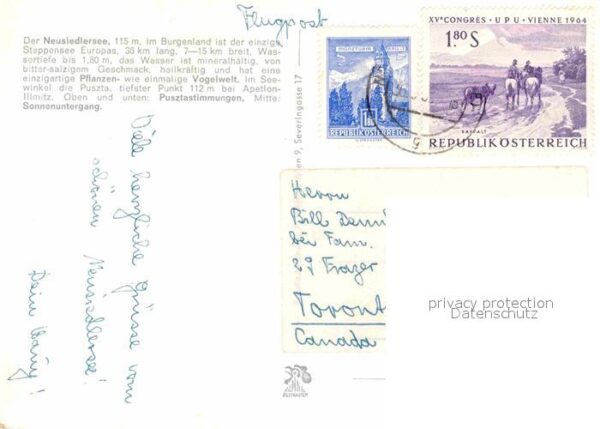 Flugpost
Der Neusiedlersee, 115 m, im Burgenland ist der einzige
Steppensee Europas, 36 km lang, 7—15 km breit, Was-
sertiefe bis 1,80 m, das Wasser ist mineralhältig, von
bitter-salzigem Geschmack, heilkräftig und hat eine
einzigartige Pflanzen- wie einmalige Vogelwelt. Im See-
winkel die Puszta, tiefster Punkt 112 m bei Apetlon-
Illmitz. Oben und unten: Pusztastimmungen, Mitte:
Sonnenuntergang.
Viele herzliche Grüsse vom
schönen Neusiedlersee!
Dein
9, Severingasse 17
S
REPUBLIK ÖSTERREICH
XV CONGRÈS · UPU · VIENNE 1964
1.80 S
REPUBLIK ÖSTERREICH
Herrn
Bill
bei Fam.
29 Frazer
Toront
Canada
privacy protection
Datenschutz